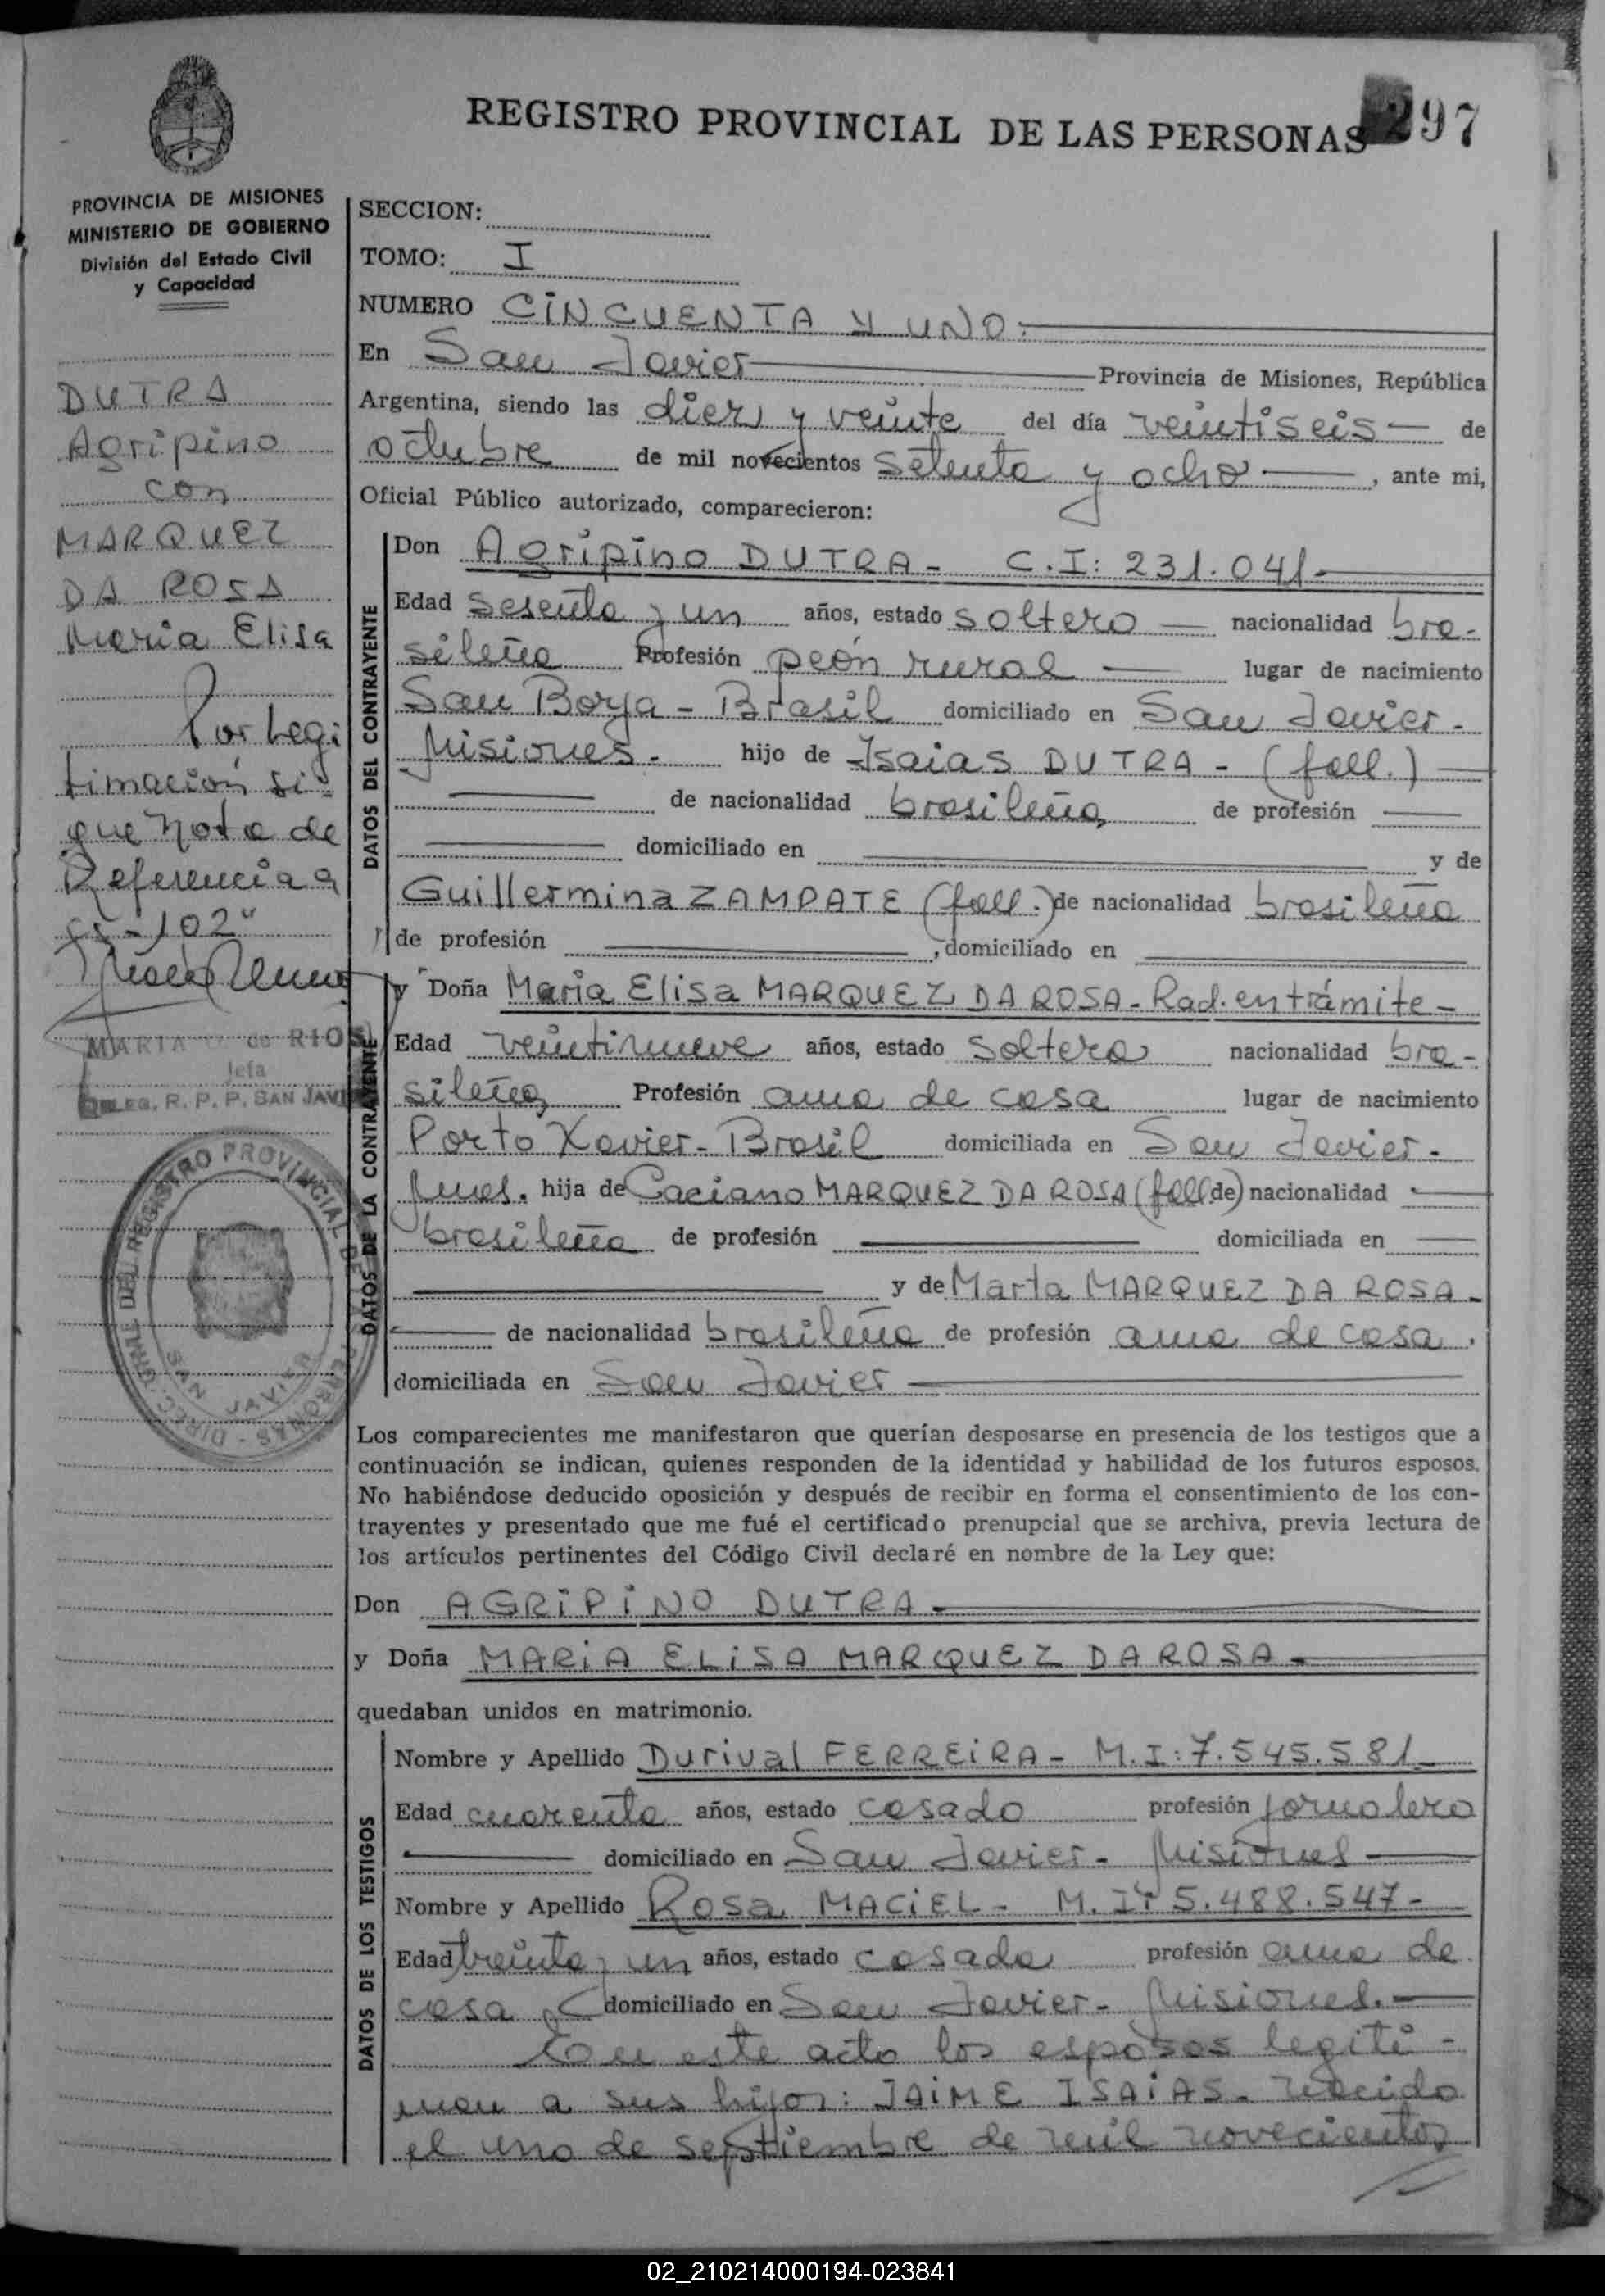 REGISTRO PROVINCIAL DE LAS PERSONAS 297
PROVINCIA DE MISIONES
MINISTERIO DE GOBIERNO
División del Estado Civil
y Capacidad
DUTRA
Agripino
con
MARQUEZ
DA ROSA
Maria Elisa
Por Legi
timación si-
gue nota de
Referencia a
fs - 102"
MARIA de RIOS
Jefa
DELEG. R. P. P. SAN JAVIER
DIREC. GRAL. DEL REGISTRO PROVINCIAL DE LAS PERSONAS -
SAN JAVIER
SECCION:
TOMO: I
NUMERO CINCUENTA Y UNO.
En San Javier Provincia de Misiones, República
Argentina, siendo las diez y veinte del día veintiseis de
octubre de mil novecientos setenta y ocho , ante mi,
Oficial Público autorizado, comparecieron:
DATOS DEL CONTRAYENTE
Don Agripino DUTRA - C.I: 231.041-
Edad Sesenta y un años, estado soltero nacionalidad bra-
sileña Profesión peón rural lugar de nacimiento
San Borja - Brasil domiciliado en San Javier -
Misiones. hijo de Isaias DUTRA - (fall.)
de nacionalidad brasileña de profesión
domiciliado en y de
Guillermina ZAMPATE (fall.) de nacionalidad brasileña
de profesión , domiciliado en
DATOS DE LA CONTRAYENTE
y Doña Maria Elisa MARQUEZ DA ROSA - Rad. en trámite -
Edad veintinueve años, estado soltera nacionalidad bra-
sileña Profesión ama de casa lugar de nacimiento
Porto Xavier - Brasil domiciliada en San Javier -
Mnes. hija de Caciano MARQUEZ DA ROSA (fall.) de nacionalidad
brasileña de profesión domiciliada en
y de Marta MARQUEZ DA ROSA -
de nacionalidad brasileña de profesión ama de casa ,
domiciliada en San Javier
Los comparecientes me manifestaron que querían desposarse en presencia de los testigos que a
continuación se indican, quienes responden de la identidad y habilidad de los futuros esposos.
No habiéndose deducido oposición y después de recibir en forma el consentimiento de los con-
trayentes y presentado que me fué el certificado prenupcial que se archiva, previa lectura de
los artículos pertinentes del Código Civil declaré en nombre de la Ley que:
Don AGRIPINO DUTRA -
y Doña MARIA ELISA MARQUEZ DA ROSA -
quedaban unidos en matrimonio.
DATOS DE LOS TESTIGOS
Nombre y Apellido Durival FERREIRA - M.I: 7.545.581
Edad cuarenta años, estado casado profesión jornalero
domiciliado en San Javier - Misiones
Nombre y Apellido Rosa MACIEL - M.I: 5.488.547-
Edad treinta y un años, estado casada profesión ama de
casa domiciliado en San Javier - Misiones.
En este acto los esposos legiti-
man a sus hijos: JAIME ISAIAS - nacido
el uno de septiembre de mil novecientos
02_210214000194-023841